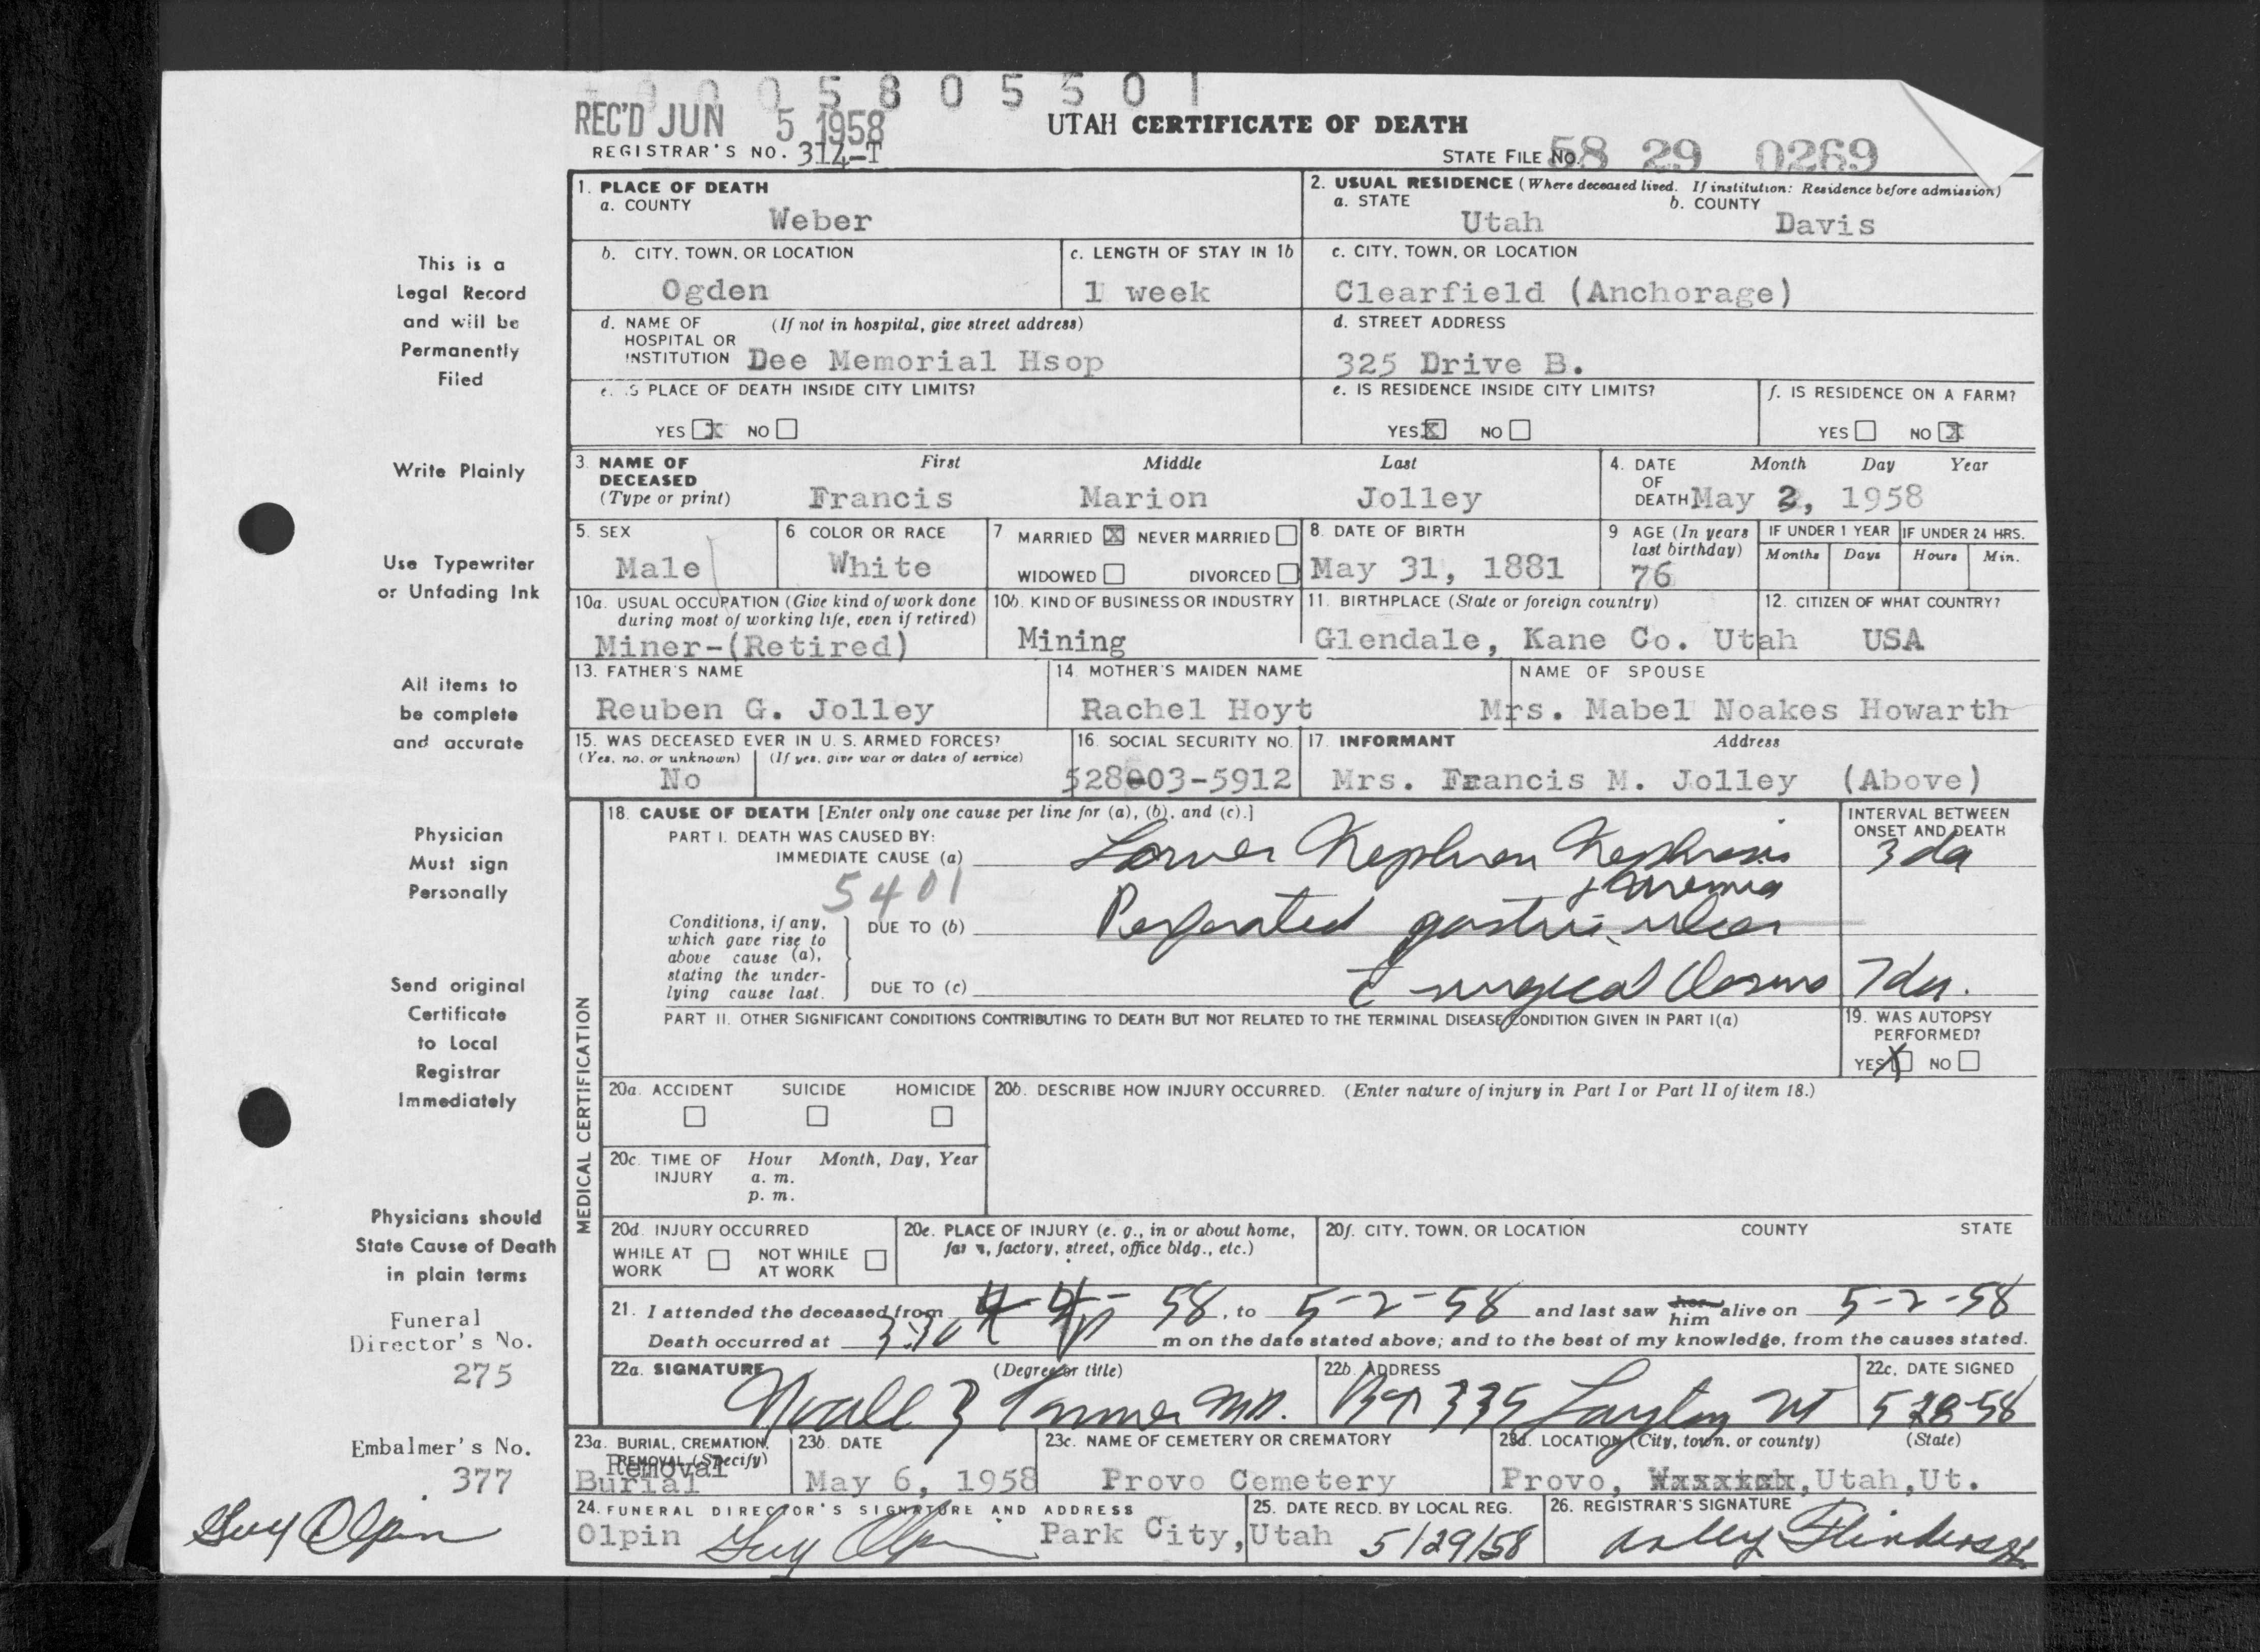 0 0 5 8 0 5 5 0 1
REC'D JUN 5 1958
UTAH CERTIFICATE OF DEATH
REGISTRAR'S NO. 314-T
STATE FILE NO. 58 29 0269
1. PLACE OF DEATH
a. COUNTY
Weber
2. USUAL RESIDENCE (Where deceased lived. If institution: Residence before admission)
a. STATE
Utah
b. COUNTY
Davis
b. CITY, TOWN, OR LOCATION
Ogden
c. LENGTH OF STAY IN 1b
1 week
c. CITY, TOWN, OR LOCATION
Clearfield (Anchorage)
d. NAME OF (If not in hospital, give street address)
HOSPITAL OR
INSTITUTION Dee Memorial Hsop
d. STREET ADDRESS
325 Drive B.
e. IS PLACE OF DEATH INSIDE CITY LIMITS?
YES X NO
e. IS RESIDENCE INSIDE CITY LIMITS?
YES X NO
f. IS RESIDENCE ON A FARM?
YES NO X
3. NAME OF DECEASED
(Type or print)
First Middle Last
Francis Marion Jolley
4. DATE OF DEATH
Month Day Year
May 2, 1958
5. SEX
Male
6 COLOR OR RACE
White
7 MARRIED X NEVER MARRIED
WIDOWED DIVORCED
8. DATE OF BIRTH
May 31, 1881
9 AGE (In years
last birthday)
76
IF UNDER 1 YEAR
Months Days
IF UNDER 24 HRS.
Hours Min.
10a. USUAL OCCUPATION (Give kind of work done
during most of working life, even if retired)
Miner-(Retired)
10b. KIND OF BUSINESS OR INDUSTRY
Mining
11. BIRTHPLACE (State or foreign country)
Glendale, Kane Co. Utah
12. CITIZEN OF WHAT COUNTRY?
USA
13. FATHER'S NAME
Reuben G. Jolley
14. MOTHER'S MAIDEN NAME
Rachel Hoyt
NAME OF SPOUSE
Mrs. Mabel Noakes Howarth
15. WAS DECEASED EVER IN U. S. ARMED FORCES?
(Yes, no, or unknown) (If yes, give war or dates of service)
No
16. SOCIAL SECURITY NO.
528-03-5912
17. INFORMANT Address
Mrs. Francis M. Jolley (Above)
MEDICAL CERTIFICATION
18. CAUSE OF DEATH [Enter only one cause per line for (a), (b), and (c).]
PART I. DEATH WAS CAUSED BY:
IMMEDIATE CAUSE (a) Lower Nephron Nephrosis
& uremia
5401
INTERVAL BETWEEN
ONSET AND DEATH
3 da
Conditions, if any,
which gave rise to
above cause (a),
stating the under-
lying cause last.
DUE TO (b) Perforated gastric ulcer
DUE TO (c) c̄ surgical closure
7 da.
PART II. OTHER SIGNIFICANT CONDITIONS CONTRIBUTING TO DEATH BUT NOT RELATED TO THE TERMINAL DISEASE CONDITION GIVEN IN PART I(a)
19. WAS AUTOPSY
PERFORMED?
YES X NO
20a. ACCIDENT SUICIDE HOMICIDE
20b. DESCRIBE HOW INJURY OCCURRED. (Enter nature of injury in Part I or Part II of item 18.)
20c. TIME OF INJURY
Hour Month, Day, Year
a. m.
p. m.
20d. INJURY OCCURRED
WHILE AT WORK
NOT WHILE AT WORK
20e. PLACE OF INJURY (e. g., in or about home,
farm, factory, street, office bldg., etc.)
20f. CITY, TOWN, OR LOCATION COUNTY STATE
21. I attended the deceased from 58, to 5-2-58 and last saw her him alive on 5-2-58
Death occurred at 3:30 m on the date stated above; and to the best of my knowledge, from the causes stated.
22a. SIGNATURE (Degree or title)
Noall Z Tanner MD.
22b. ADDRESS
335 Layton Ut
22c. DATE SIGNED
5-28-58
23a. BURIAL, CREMATION,
REMOVAL (Specify)
Removal
Burial
23b. DATE
May 6, 1958
23c. NAME OF CEMETERY OR CREMATORY
Provo Cemetery
23d. LOCATION (City, town, or county) (State)
Provo, Utah, Ut.
24. FUNERAL DIRECTOR'S SIGNATURE AND ADDRESS
Olpin Guy Olpin Park City, Utah
25. DATE RECD. BY LOCAL REG.
5/29/58
26. REGISTRAR'S SIGNATURE
This is a
Legal Record
and will be
Permanently
Filed
Write Plainly
Use Typewriter
or Unfading Ink
All items to
be complete
and accurate
Physician
Must sign
Personally
Send original
Certificate
to Local
Registrar
Immediately
Physicians should
State Cause of Death
in plain terms
Funeral
Director's No.
275
Embalmer's No.
377
Guy Olpin